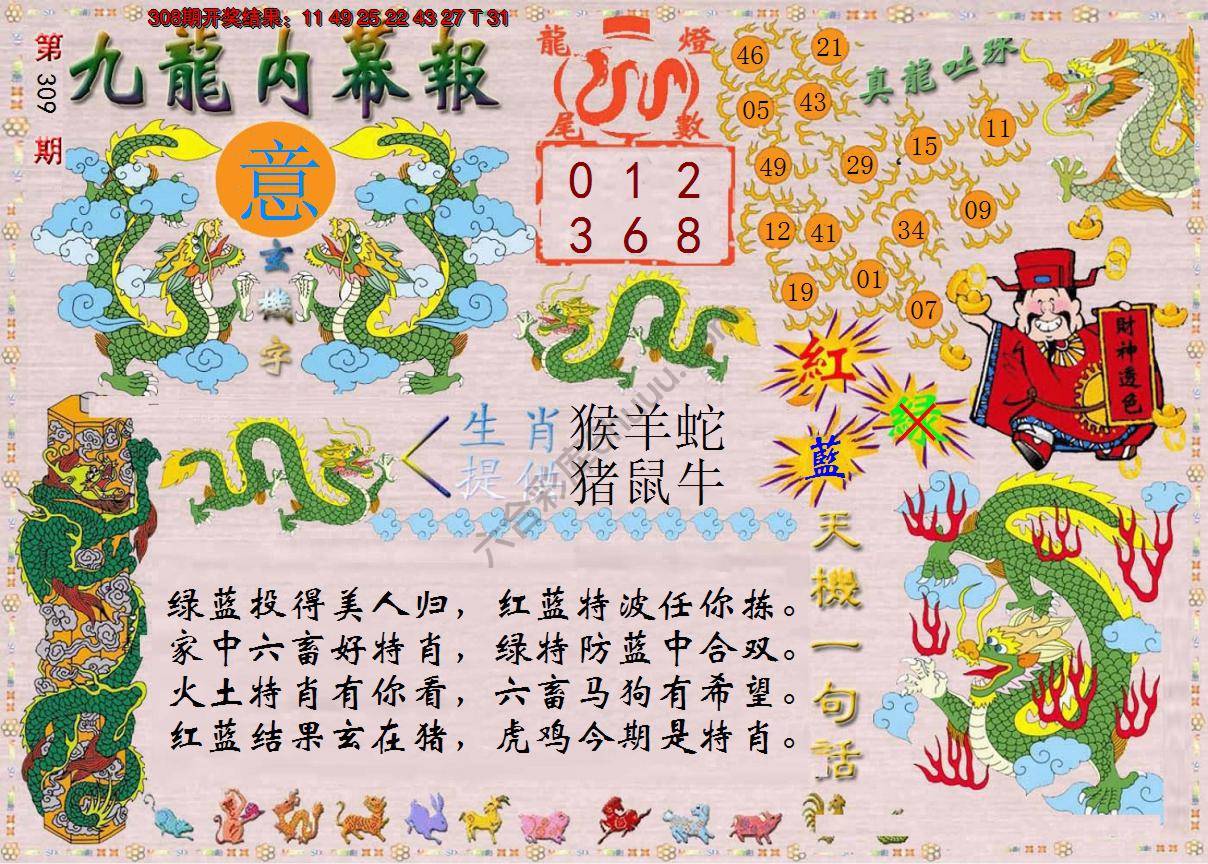 308期开奖结果：11 49 25 22 43 27 T 31
第309期
九龍内幕報
意
玄機字
龍燈尾數
0 1 2
3 6 8
真龍吐珠
46 21
05 43
49 29 15 11
12 41 34 09
19 01 07
財神透色
紅
绿
藍
生肖 猴羊蛇
提供 猪鼠牛
天機一句話
绿蓝投得美人归，红蓝特波任你拣。
家中六畜好特肖，绿特防蓝中合双。
火土特肖有你看，六畜马狗有希望。
红蓝结果玄在猪，虎鸡今期是特肖。